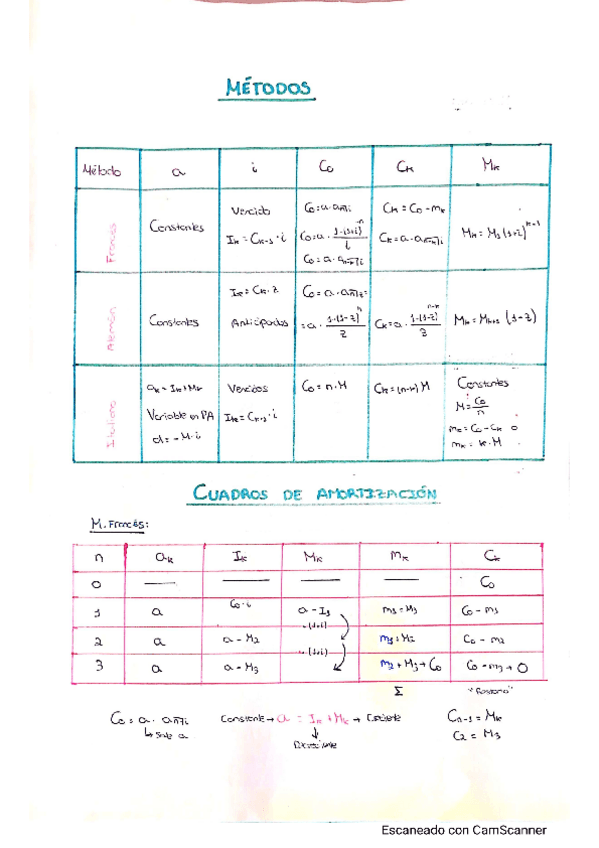 MÉTODOS
Método a i C₀ Cₖ Mₖ
Francés
Constantes
Vencido
Iₖ = Cₖ₋₁ · i
C₀ = a · aₙ¬i
C₀ = a · (1-(1+i)⁻ⁿ)/i
C₀ = a · aₙ¬i
Cₖ = C₀ - mₖ
Cₖ = a · aₙ₋ₖ¬i
Mₖ = M₁ (1+i)ᵏ⁻¹
Alemán
Constantes
Iₖ = Cₖ · z
Anticipados
C₀ = a · aₙ¬z =
= a · (1-(1-z)ⁿ)/z
Cₖ = a · (1-(1-z)ⁿ⁻ᵏ)/z
Mₖ = Mₖ₊₁ (1-z)
Italiano
aₖ = Iₖ + Mₖ
Variable en PA
d = - M · i
Vencidos
Iₖ = Cₖ₋₁ · i
C₀ = n · M
Cₖ = (n-k) M
Constantes
M = C₀/n
mₖ = C₀ - Cₖ o
mₖ = k · M
CUADROS DE AMORTIZACIÓN
M. Francés:
n aₖ Iₖ Mₖ mₖ Cₖ
0 — — — — C₀
1 a C₀ · i a - I₁ m₁ = M₁ C₀ - m₁
· (1+i)
2 a a - M₂ m₁ + M₂ C₀ - m₂
· (1+i)
3 a a - M₃ m₂ + M₃ → C₀ C₀ - m₃ → 0
Σ
C₀ = a · aₙ¬i
↳ Sale a
Constante → a = Iₖ + Mₖ → Creciente
↓
Decreciente
Cₙ₋₁ = Mₖ
C₂ = M₃
Escaneado con CamScanner